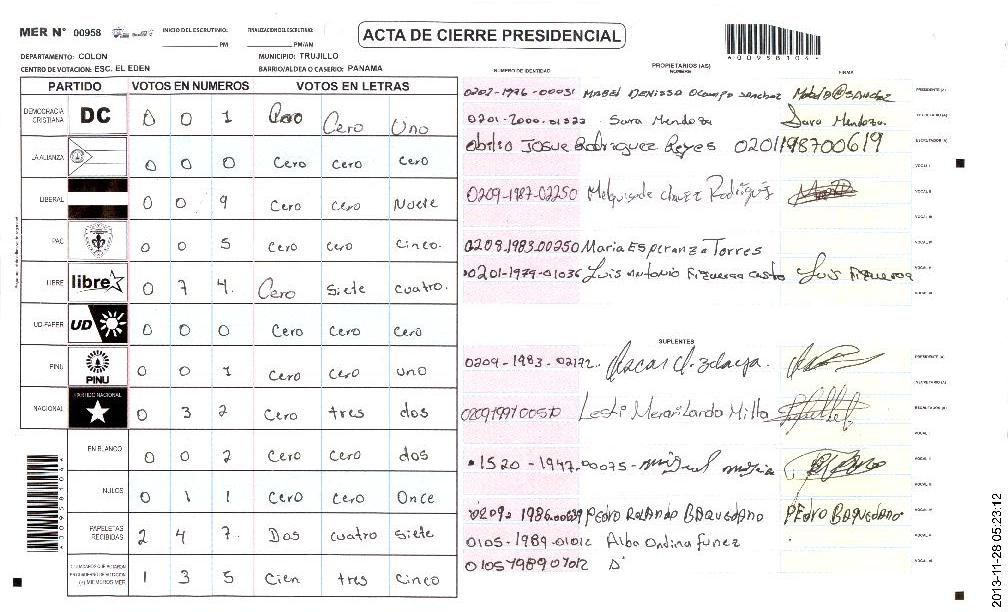 MER N° 00958 INICIO DEL ESCRUTINIO: ________ PM FINALIZACION DEL ESCRUTINIO: ________ PM/AM
ACTA DE CIERRE PRESIDENCIAL
A00958104
DEPARTAMENTO: COLON MUNICIPIO: TRUJILLO
CENTRO DE VOTACION: ESC. EL EDEN BARRIO/ALDEA O CASERIO: PANAMA
PARTIDO VOTOS EN NUMEROS VOTOS EN LETRAS
DEMOCRACIA CRISTIANA DC 0 0 1 Cero Cero Uno
LA ALIANZA 0 0 0 Cero Cero Cero
LIBERAL 0 0 9 Cero Cero Nueve
PAC 0 0 5 Cero Cero Cinco.
LIBRE libre 0 7 4. Cero Siete cuatro.
UD-FAPER UD 0 0 0 Cero Cero Cero
PINU PINU 0 0 1 Cero Cero uno
NACIONAL PARTIDO NACIONAL 0 3 2 Cero tres dos
EN BLANCO 0 0 2 Cero Cero dos
NULOS 0 1 1 Cero Cero Once
PAPELETAS RECIBIDAS 2 4 7. Dos cuatro siete
1 3 5 Cien tres Cinco
PROPIETARIOS (AS)
NUMERO DE IDENTIDAD NOMBRE FIRMA
0202-1976-00031 MABEL DENISSA Ocampo Sanchez PRESIDENTE (A)
0201-2000-01322 Sara Mendoza Sara Mendoza. SECRETARIO (A)
Abilio JOSUE Rodriguez Reyes 0201198700619 ESCRUTADOR (A)
VOCAL I
0209-1987-02250 Rodriguez VOCAL II
VOCAL III
0208.1983.00250 Maria ESPeranza Torres VOCAL IV
0201-1979-01036 Luis Antonio Figueroa Castro Luis Figueroa VOCAL V
SUPLENTES
0209-1983-02192. Oscar PRESIDENTE (A)
SECRETARIO (A)
0209199100570 Milla ESCRUTADOR (A)
VOCAL I
1520-1947.00075- VOCAL II
VOCAL III
0209-1986.00639 PEDRO ROLANDO BAQUEDANO PEDRO BAQUEDANO VOCAL IV
0105-1989-01012 Alba Ondina Funez
0105198907012
2013-11-28 05:23:12